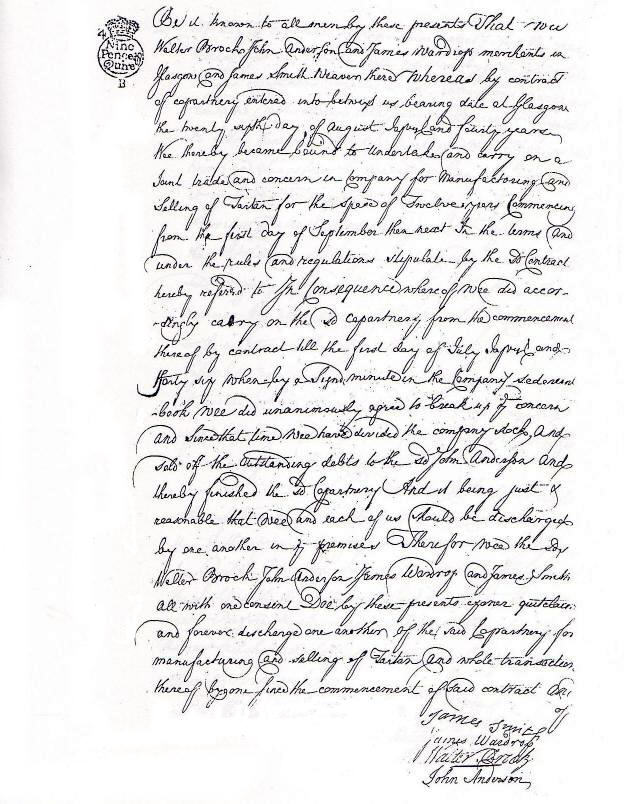 4
Nine
Pence
Quire
B
Be it known to all men by these presents That Wee
Walter Brock John Anderson and James Wardrop merchants in
Glasgow and James Smith Weaver there Whereas by contract
of copartnery entered into betwixt us bearing date at Glasgow
the twenty sixth day of August Jajvij and fourty years
Wee thereby became bound to Undertake and carry on a
Joint trade and concern in Company for Manufactoring and
Selling of Tartan for the space of Twelve years Commencing
from the first day of September then next In the terms and
under the rules and regulations stipulate by the sd Contract
hereby referred to In Consequence whereof Wee did accor-
dingly carry on the sd Copartnery from the commencement
thereof by contract till the first day of July Jajvij and
fforty six when by a Signd minute in the Company Sederunt
-book Wee did unanimously agree to break up yt concern
and Since that time Wee have divided the company stock, and
sold off the outstanding debts to the sd John Anderson and
thereby finished the sd Copartnery And it being just &
reasonable that Wee and each of us should be discharged
by one another in ye premises Therefor Wee the sds
Walter Brock John Anderson James Wardrop and James Smith
all with one consent Doe by these presents exoner quitclaim
and forever discharge one another of the said Copartnery for
manufacturing and selling of Tartan and whole transactions
thereof bygone since the commencement of said contract
of
James Smith
James Wardrop
Walter Brock
John Anderson